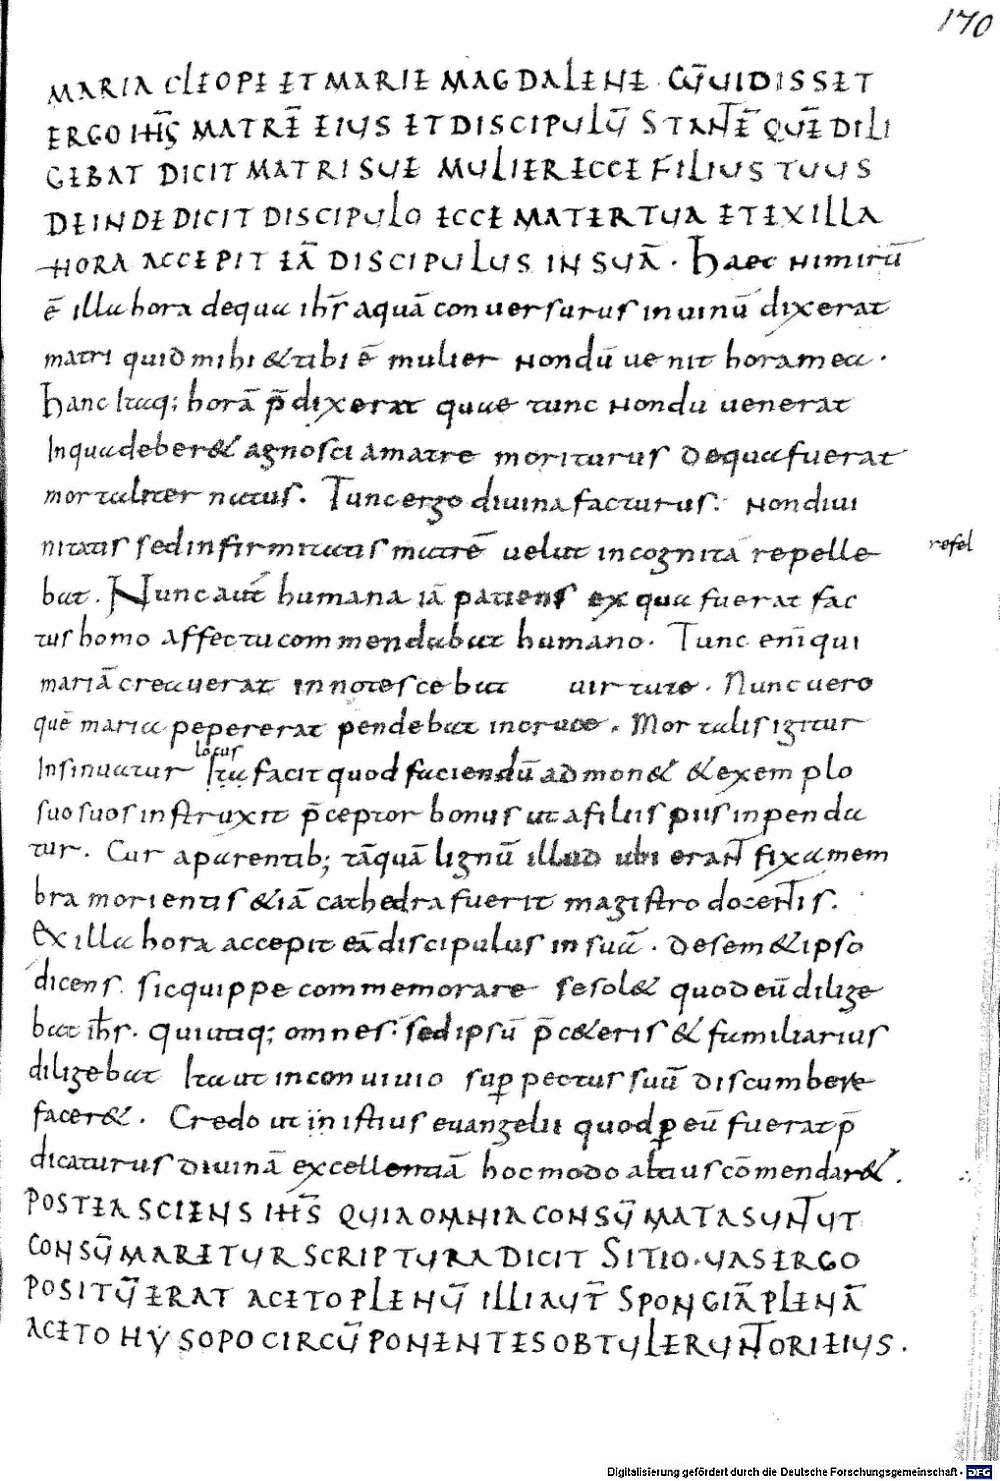 170
MARIA CLEOPE ET MARIE MAGDALENE. CŪ VIDISSET
ERGO IHS̄ MATRĒ EIUS ET DISCIPULŪ STANTĒ QUĒ DILI
GEBAT DICIT MATRI SUE MULIER ECCE FILIUS TUUS
DEINDE DICIT DISCIPULO ECCE MATER TUA ET EX ILLA
HORA ACCEPIT EĀ DISCIPULUS IN SUĀ. Haec nimirū
ē illa hora de qua ihs̄ aquā conversurus in uinū dixerat
matri quid mihi & tibi ē mulier nondū uenit hora mea.
Hanc Itaq; horā p̄dixerat quae tunc nondū uenerat
In qua deber& agnosci a matre moriturus de qua fuerat
mortaliter natus. Tunc ergo diuina facturus. non diui
nitatis sed infirmitatis matrē uelut incognitā repelle
refel
bat. Nunc aut̄ humana iā patiens ex qua fuerat fac
tus homo affectu commendabat humano. Tunc enī qui
mariā creauerat innotescebat uirtute. Nunc uero
quē maria pepererat pendebat in cruce. Mortalis igitur
locus
Insinuatur Ita facit quod faciendū admon& & exemplo
suo suos instruxit p̄ceptor bonus ut a filiis piis inpenda
tur. Cur a parentib; tāquā lignū illud ubi erant fixa mem
bra morientis & iā cathedra fuerit magistro docentis.
Ex illa hora accepit eā discipulus in suā. De sem & ipso
dicens. sic quippe commemorare se sol& quod eū dilige
bat ihs̄. qui utiq; omnes. sed ipsū p̄ c&eris & familiarius
diligebat Ita ut in conuiuio sup̱ pectus suū discumbere
facer&. Credo ut in istius euangelii quod p̱ eū fuerat p̄
dicaturus diuinā excellentiā hoc modo altius cōmendar&.
POSTEA SCIENS IHS̄ QUIA OMNIA CONSŪMATA SUNT UT
CONSŪMARETUR SCRIPTURA DICIT SITIO. VAS ERGO
POSITŪ ERAT ACETO PLENŪ ILLI AUT̄ SPONGIĀ PLENĀ
ACETO HYSOPO CIRCŪPONENTES OBTULERUNT ORI EIUS.
Digitalisierung gefördert durch die Deutsche Forschungsgemeinschaft - DFG